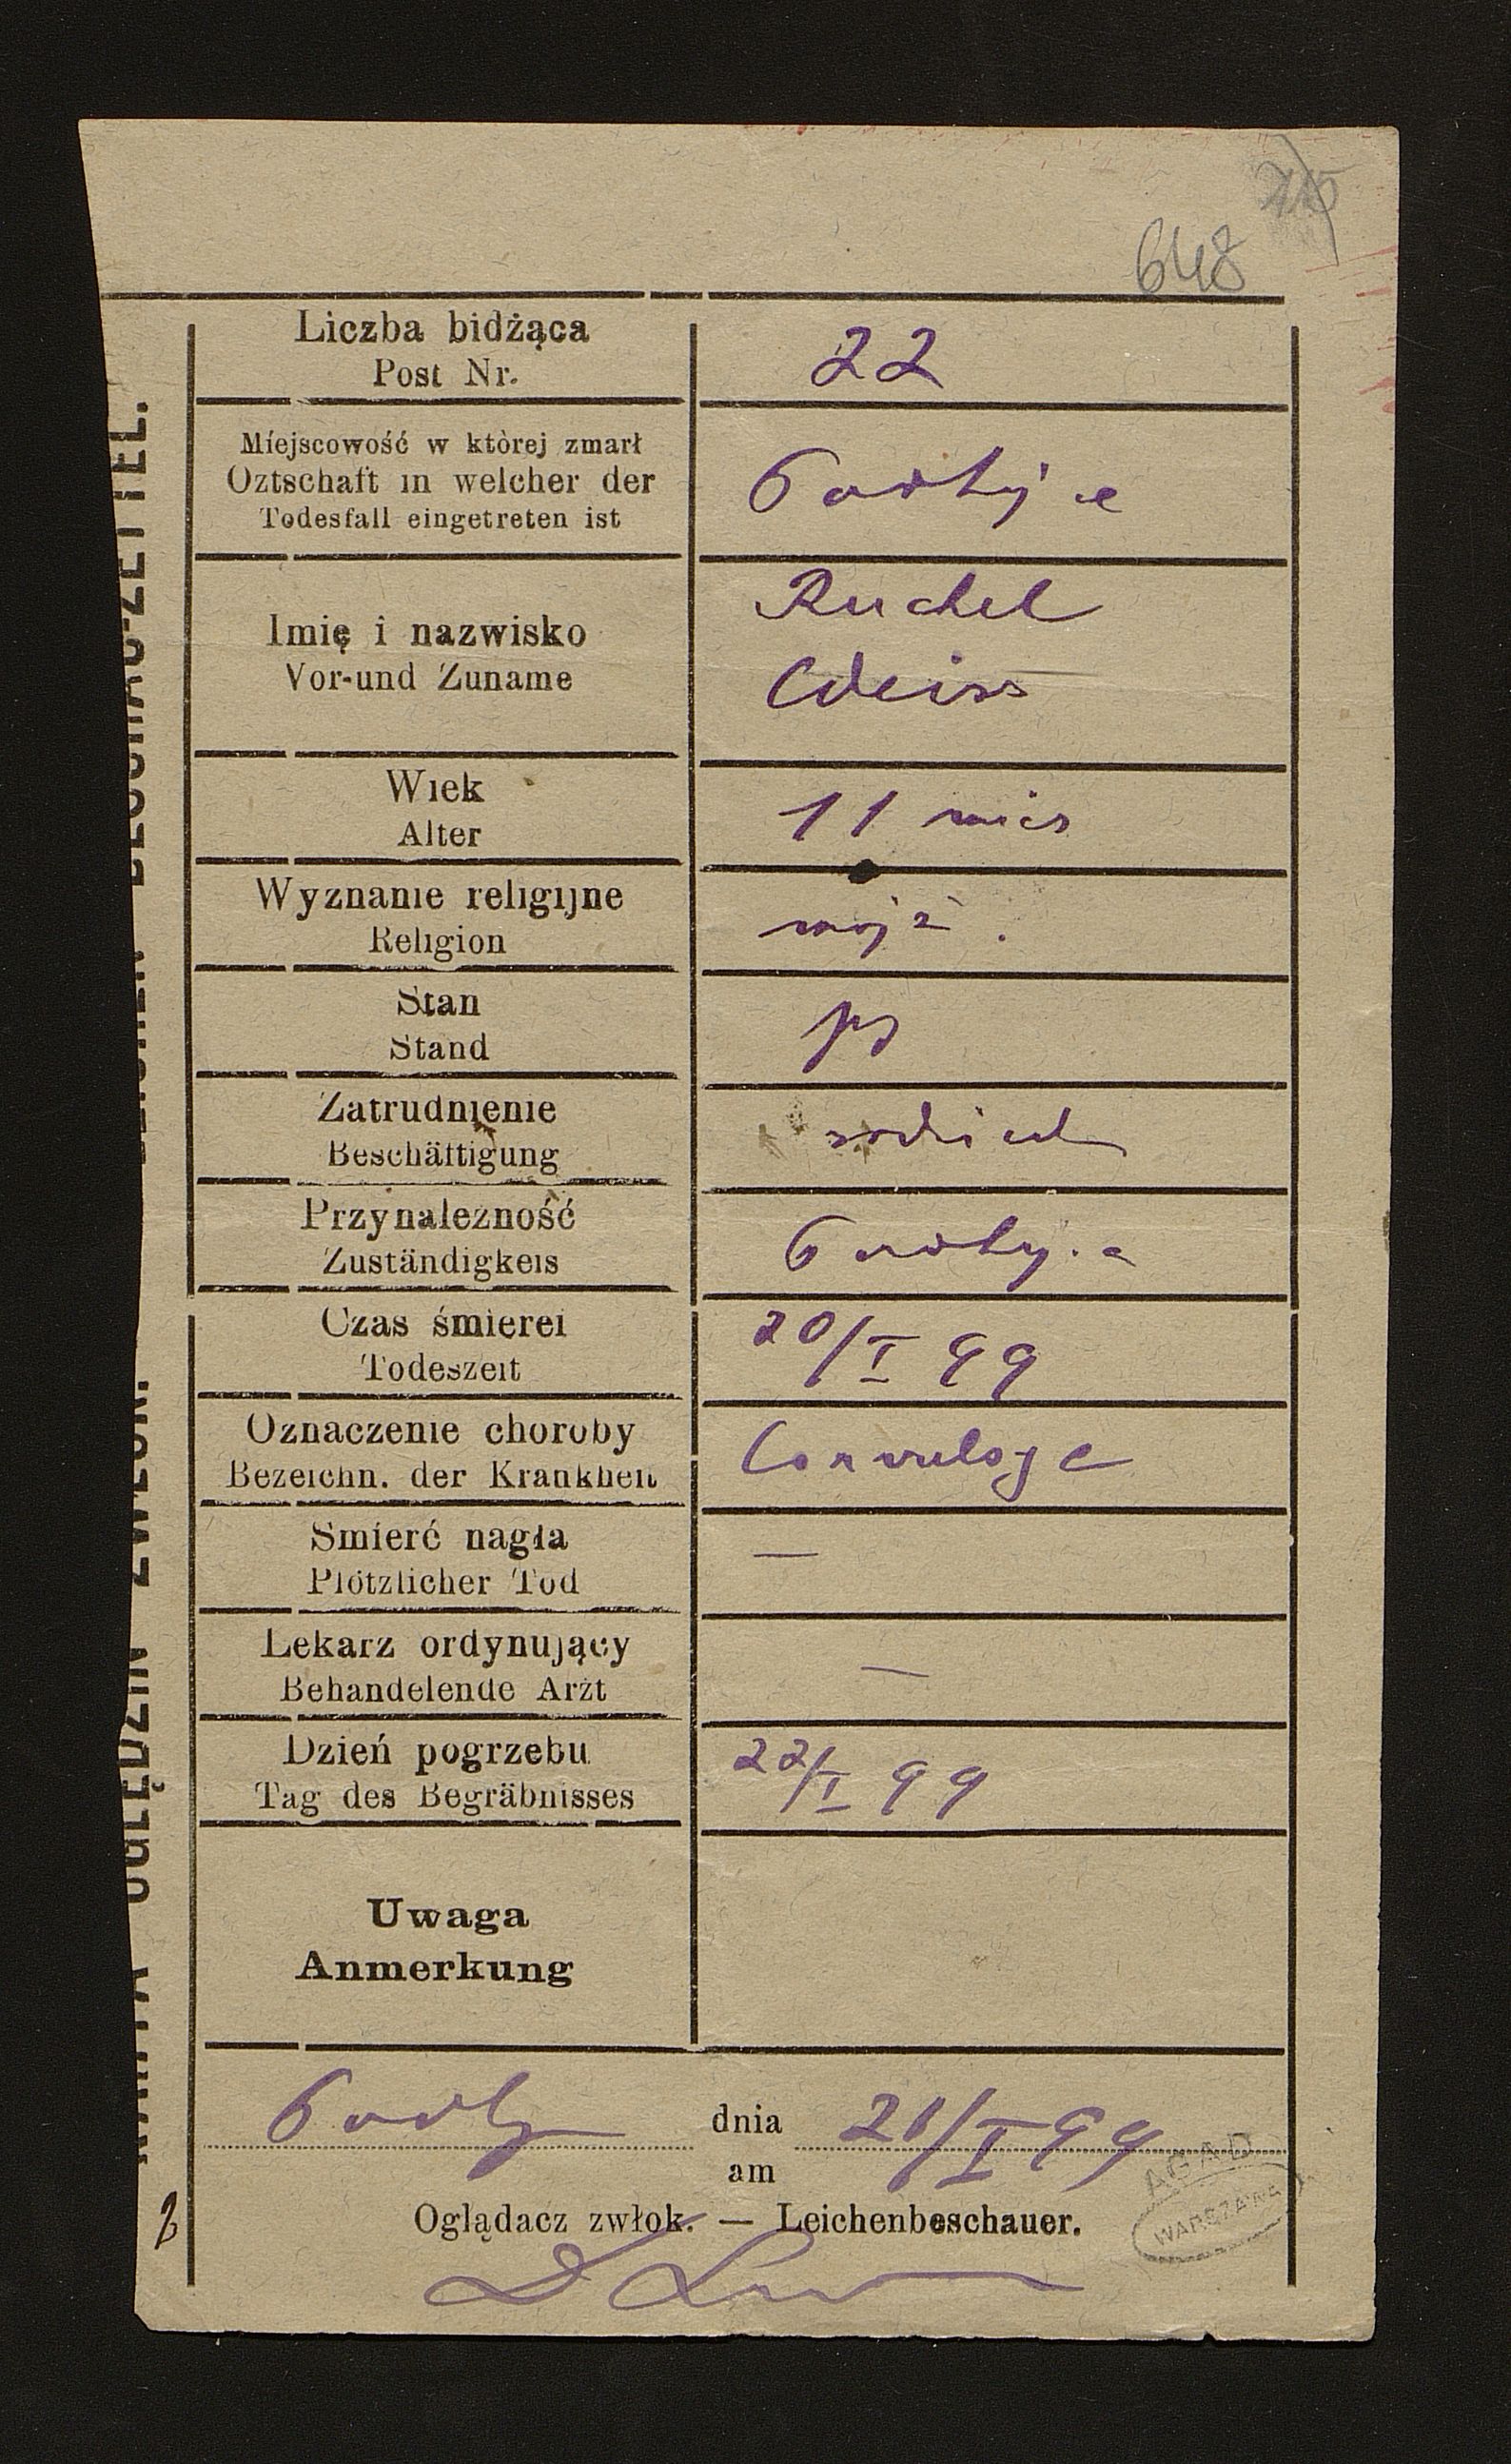 648
Liczba bidżąca
Post Nr.
22
Miejscowość w którėj zmarł
Oztschaft in welcher der
Todesfall eingetreten ist
Imię i nazwisko
Vor-und Zuname
Ruchel
Weiss
Wiek
Alter
11 mies
Wyznanie religijne
Religion
mojż.
Stan
Stand
Zatrudnienie
Beschäftigung
Przynależność
Zuständigkeis
Czas śmierei
Todeszeit
20/I 99
Oznaczenie choroby
Bezeichn. der Krankheit
Convulsye
Smierć nagła
Plötzlicher Tod
—
Lekarz ordynujący
Behandelende Arzt
—
Dzień pogrzebu
Tag des Begräbnisses
22/I 99
Uwaga
Anmerkung
dnia 21/I 99
am
Oglądacz zwłok. — Leichenbeschauer.
AGAD
WARSZAWA
KARTA OGLĘDZIN ZWŁOK.